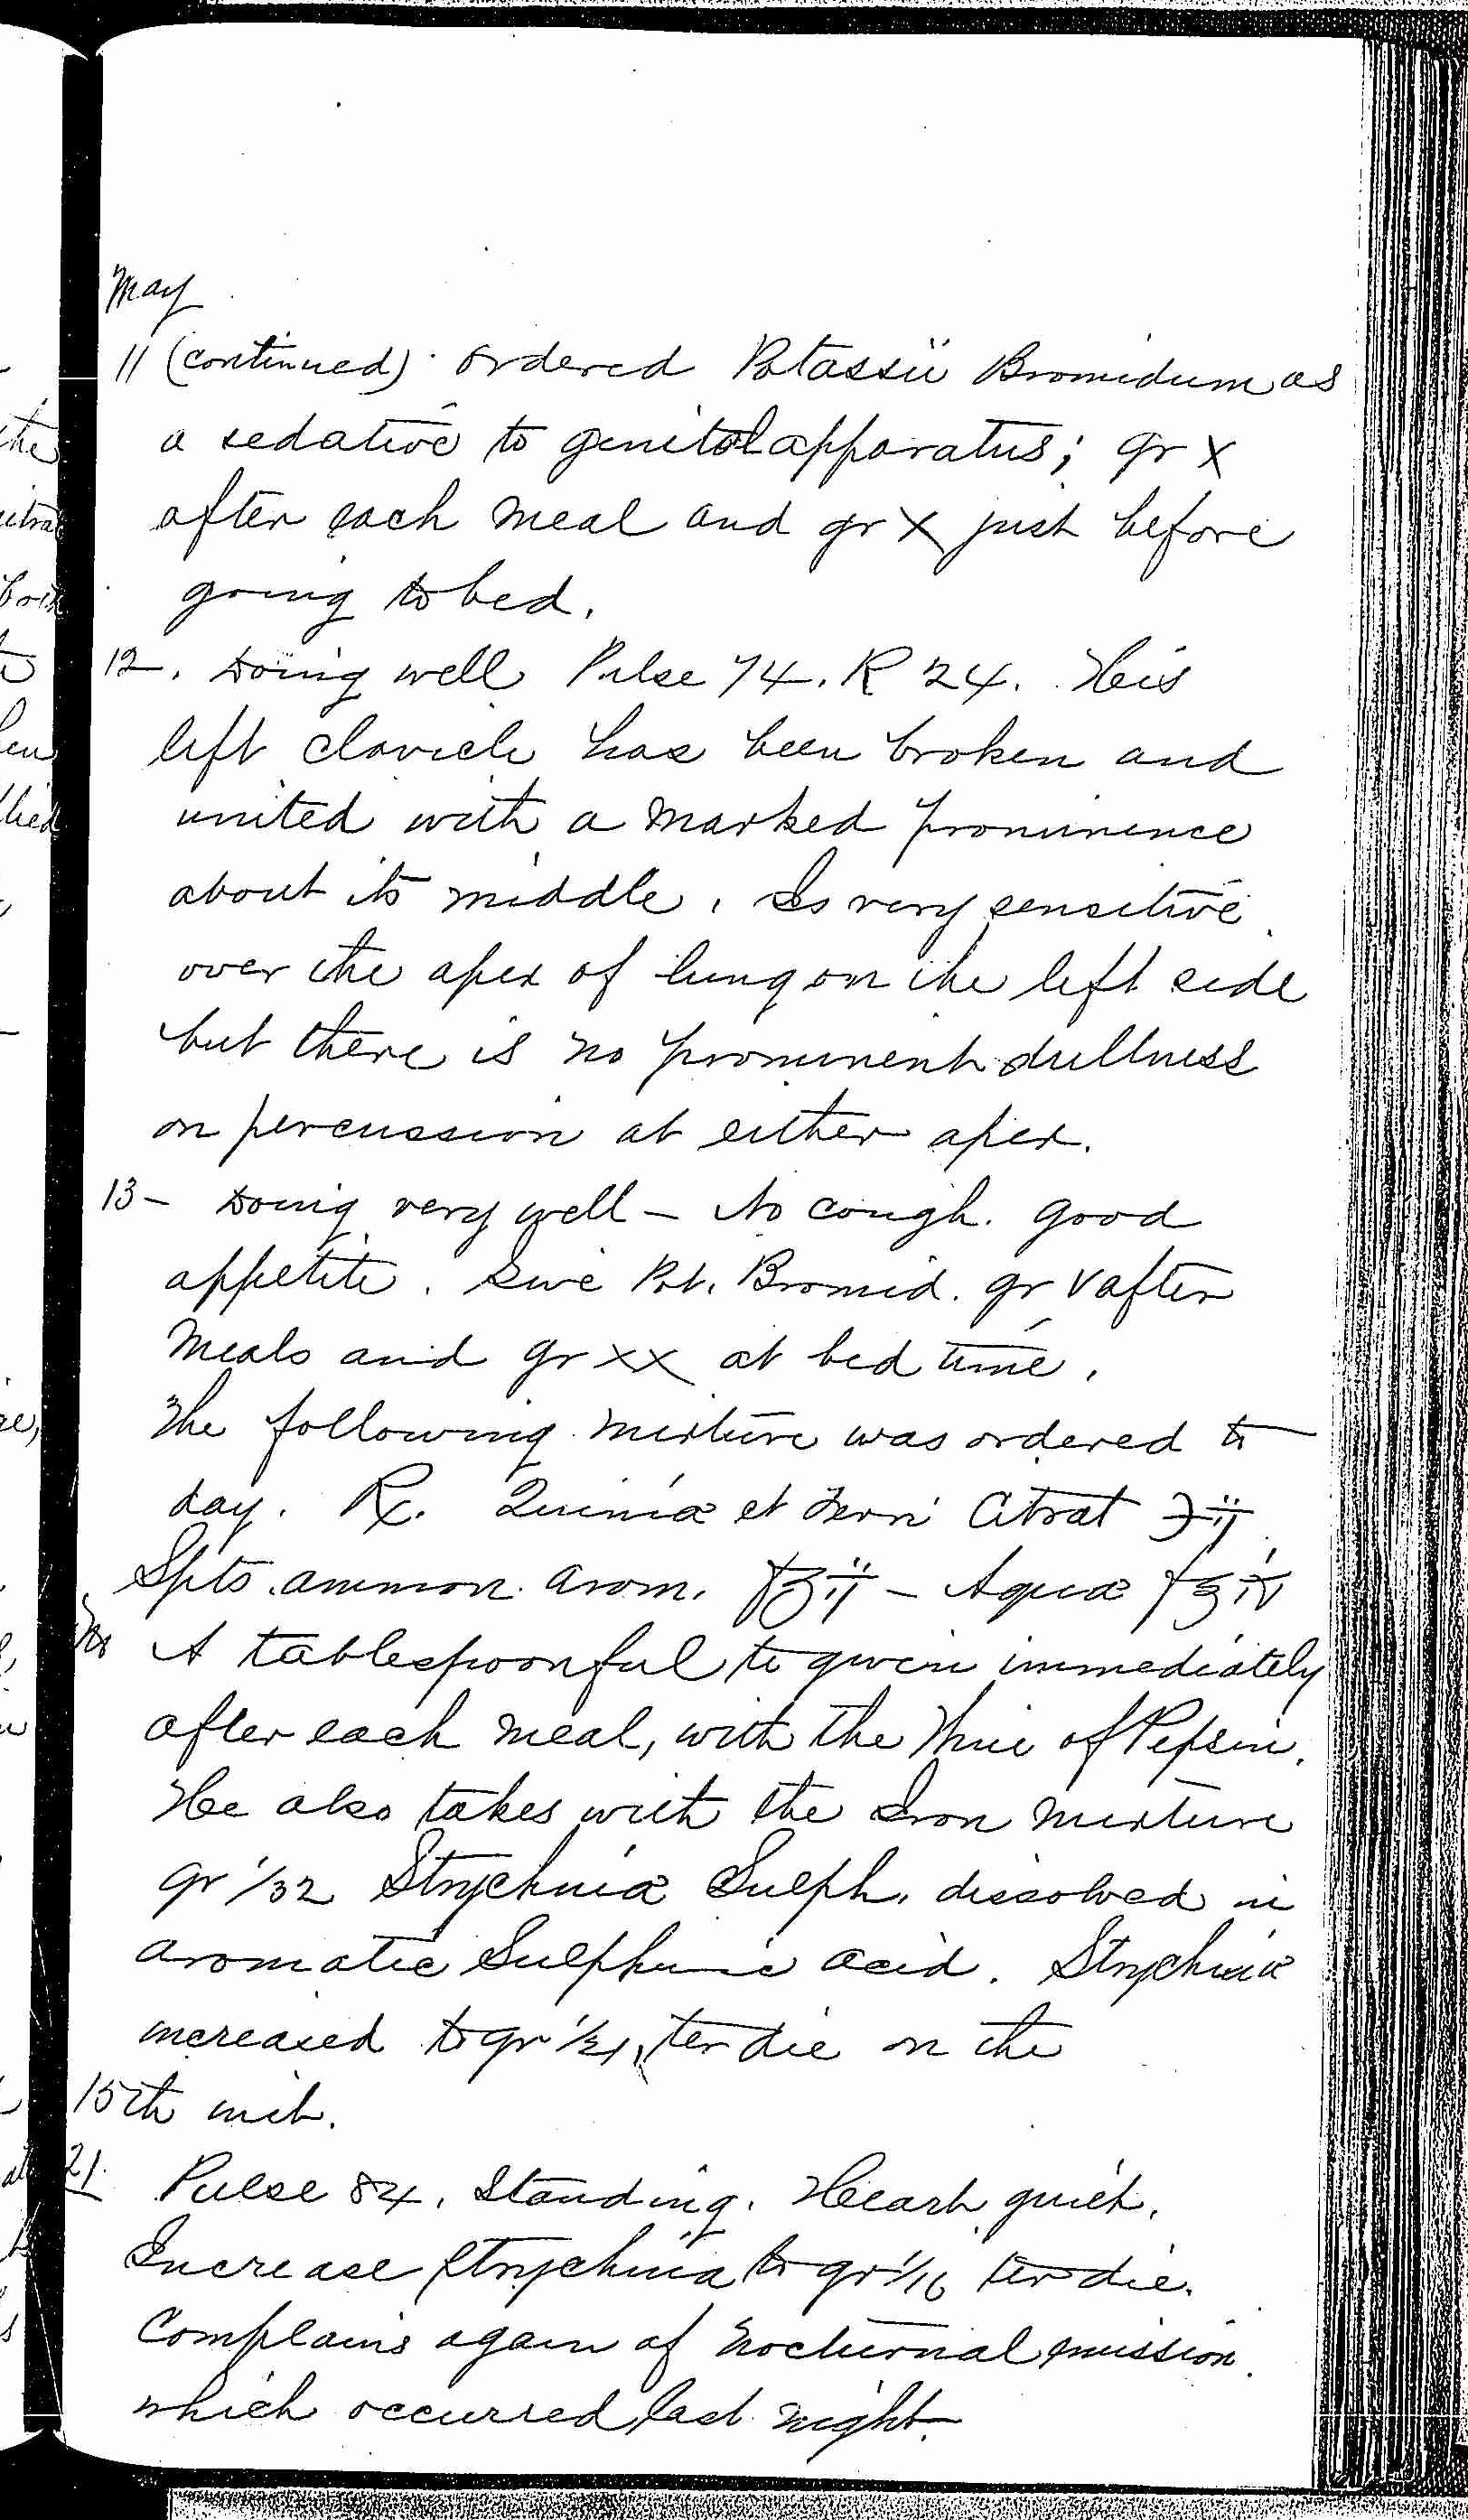 May
11 (continued). Ordered Potassii Bromidum as
a sedative to genital apparatus; gr X
after each meal and gr X just before
going to bed.
12. Doing well Pulse 74. R 24. His
left clavicle has been broken and
united with a marked prominence
about its middle. Is very sensitive
over the apex of lung on the left side
but there is no prominent dullness
on percussion at either apex.
13 - Doing very well - No cough. Good
appetite. Give Pot. Bromid. gr V after
meals and gr XX at bed time.
The following mixture was ordered to
day. Rx. Quiniæ et Ferri Citrat ℈ij
Spts. ammon. arom. f℥ij - Aquæ f℥iv
A tablespoonful to given immediately
after each meal, with the Wine of Pepsin.
He also takes with the Iron mixture
gr 1/32 Strychniæ Sulph. dissolved in
aromatic Sulphuric acid. Strychniæ
increased to gr 1/21, ter die on the
15th inst.
21. Pulse 84. Standing. Heart quiet.
Increase Strychnia to gr 1/16 ter die.
Complains again of nocturnal emission
which occurred last night.